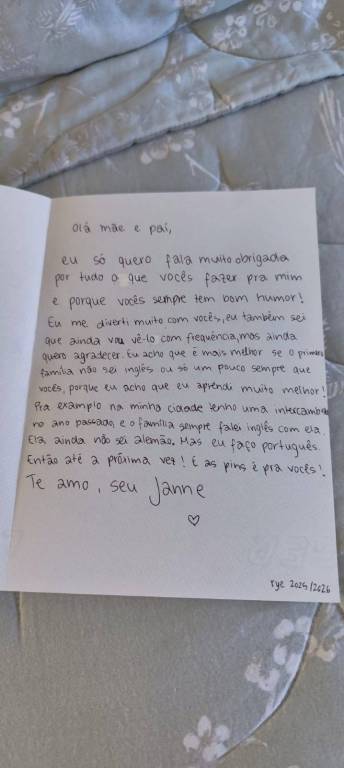 Olá mãe e pai,
eu só quero fala muito obrigada
por tudo o que vocês fazer pra mim
e porque vocês sempre tem bom humor!
Eu me diverti muito com vocês, eu também sei
que ainda vou vê-lo com frequência, mas ainda
quero agradecer. Eu acho que é mais melhor se o primeiro
família não sei inglês ou só um pouco sempre que
vocês, porque eu acho que eu aprendi muito melhor!
Pra examplo na minha cidade tenho uma intercambista
no ano passado, e o família sempre falei inglês com ela.
Ela ainda não sei alemão. Mas eu faço português.
Então até a próxima vez! E as pins é pra vocês!
Te amo, seu Janne
♡
rye 2025/2026